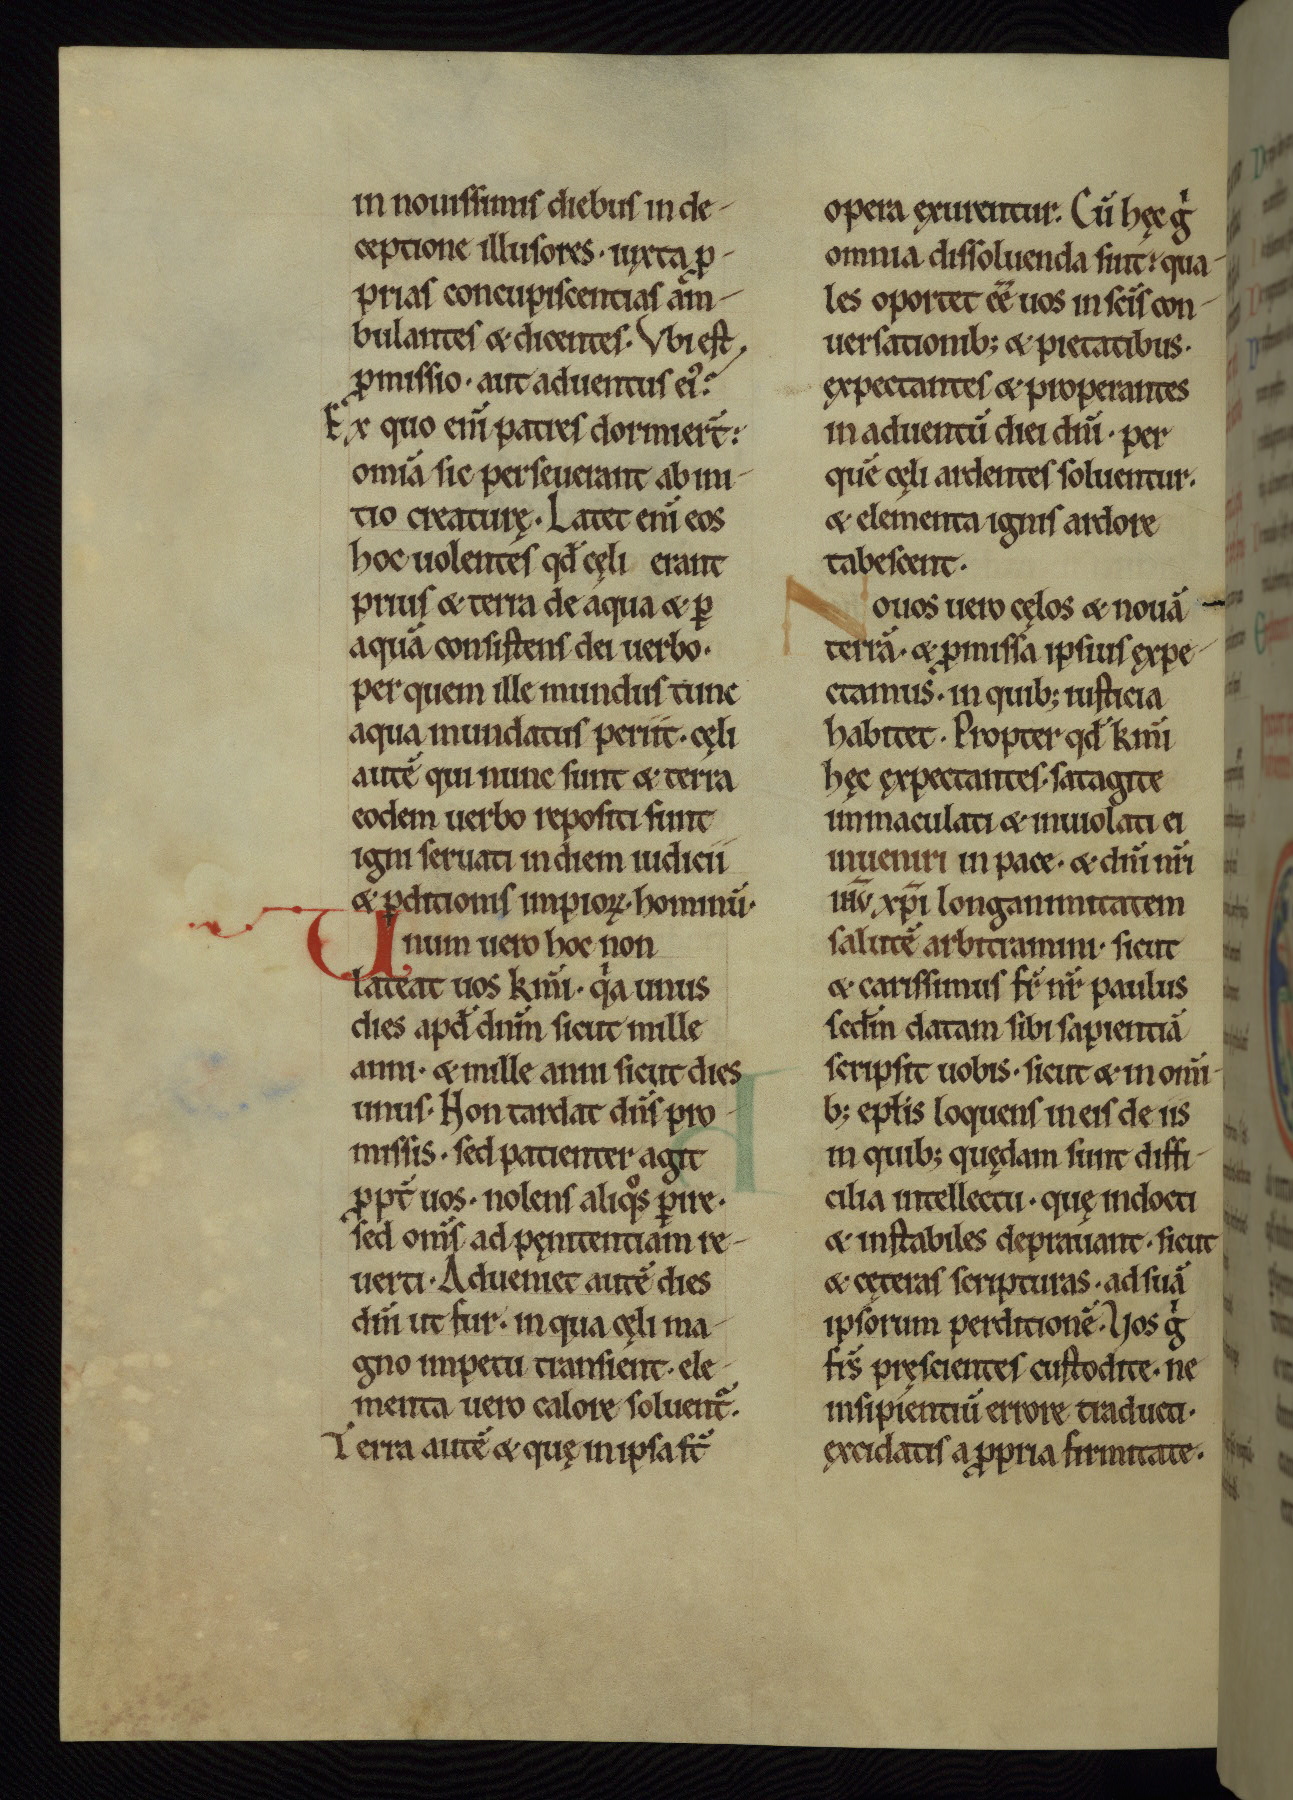 in nouissimis diebus in de-
ceptione illusores · iuxta ꝓ-
prias concupiscentias am-
bulantes & dicentes · Vbi est
ꝓmissio · aut aduentus ei᾽?
Ex quo eni̅ patres dormier̅t?
omia̅ sic perseuerant ab ini-
tio creaturę · Latet eni̅ eos
hoc uolentes qd̅ cęli erant
prius & terra de aqua & ꝑ
aqua̅ consistens dei uerbo ·
per quem ille mundus tunc
aqua inundatus periit · cęli
aute̅ qui nunc sunt & terra
eodem uerbo repositi sunt
igni seruati in diem iudicii
& ꝑditionis impioꝝ · hominu̅ ·
Unum uero hoc non
lateat uos kmi̅ · qia unus
dies apd̅ dnm̅ sicut mille
anni · & mille anni sicut dies
unus · Non tardat dns̅ pro-
missis · sed patienter agit
ꝓpt̅ uos · nolens aliqos ꝑire ·
sed oms̅ ad pęnitentiam re-
uerti · Adueniet aute̅ dies
dni̅ ut fur · in qua cęli ma-
gno impetu transient · ele-
menta uero calore soluent᷑ ·
Terra aute̅ & quę in ipsa st̅
opera exurentur. Cu̅ hęc gi
omnia dissoluenda sint? qua-
les oportet ee̅ uos in scis̅ con-
uersationib; & pietatibus ·
expectantes & properantes
in aduentu̅ diei dni̅ · per
que̅ cęli ardentes soluentur ·
& elementa ignis ardore
tabescent ·
Nouos uero cęlos & noua̅
terra̅ · & ꝓmissa ipsius expe-
ctamus · in quib; iusticia
habitet · Propter qd̅ kmi̅
hęc expectantes · satagite
immaculati & inuiolati ei
inueniri in pace · & dni̅ nri̅
ihu̅ xpi̅ longanimitatem
salute̅ arbitramini · sicut
& carissimus fr̅ nr̅ paulus
scdm̅ datam sibi sapientia̅
scripsit uobis · sicut & in omi̅-
b; eplis̅ loquens in eis de iis
in quib; quędam sunt diffi-
cilia intellectu · quę indocti
& instabiles deprauant · sicut
& cęteras scripturas · ad sua̅
ipsorum perditione̅ · Uos gi
frs̅ pręscientes custodite · ne
insipientiu̅ errore traducti ·
excidatis a ꝓpria firmitate ·